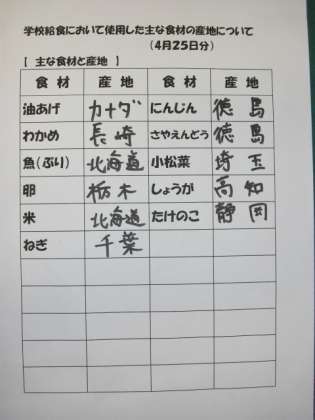 学校給食において使用した主な食材の産地について
（4月25日分）
【 主な食材と産地 】
食材 産地 食材 産地
油あげ カナダ にんじん 徳島
わかめ 長崎 さやえんどう 徳島
魚（ぶり） 北海道 小松菜 埼玉
卵 栃木 しょうが 高知
米 北海道 たけのこ 静岡
ねぎ 千葉